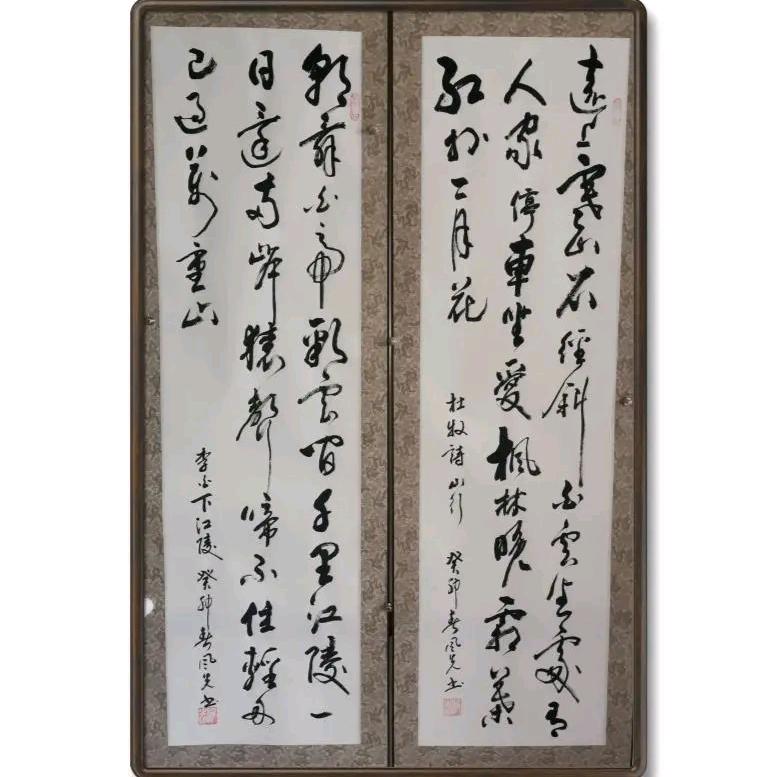 遠上寒山石徑斜白雲生處有
人家停車坐愛楓林晚霜葉
紅於二月花
杜牧詩山行 癸卯春風光书
朝辭白帝彩雲間千里江陵一
日還兩岸猿聲啼不住輕舟
已過萬重山
李白下江陵 癸卯春風光书